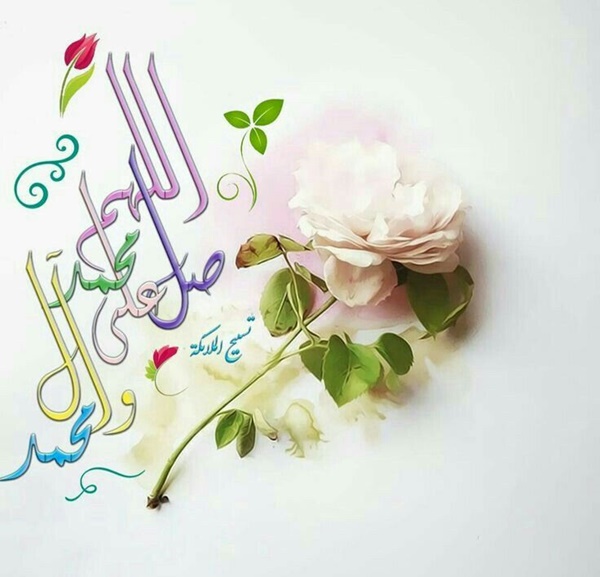 اللهم
صل
على محمد
وآل
محمد
تسبيح الملايكة